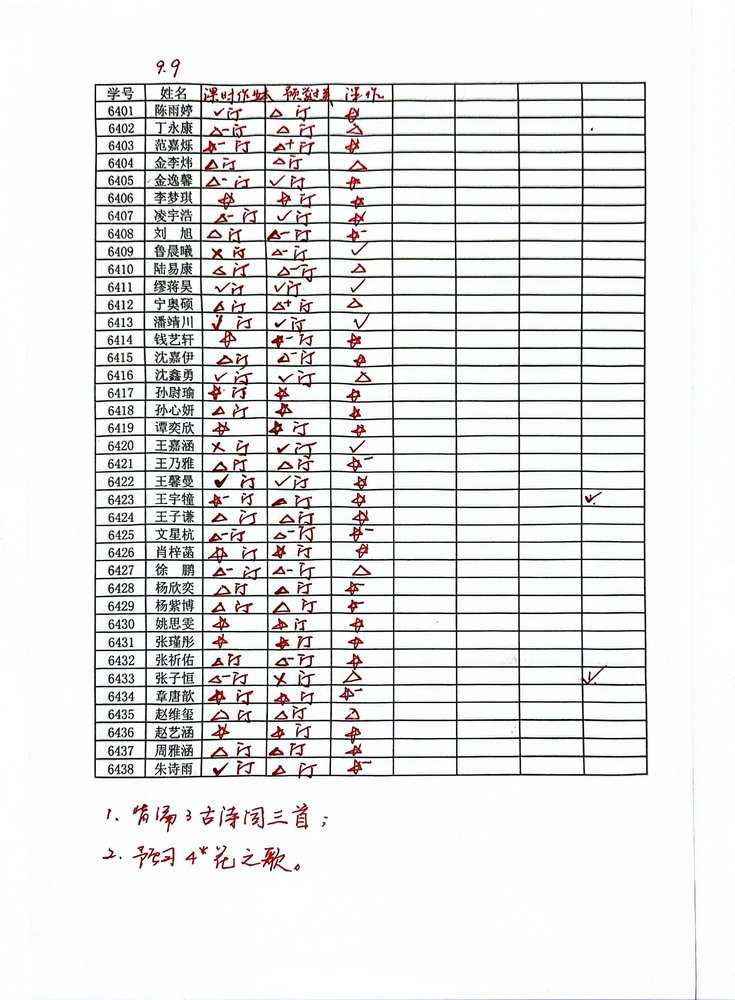 9.9
学号 姓名 课时作业本 预 习 课作
6401 陈雨婷 ✓订 △ 订 ☆
6402 丁永康 △-订 △ 订 △
6403 范嘉烁 ☆-订 △+订 ☆
6404 金李炜 △订 △订 △
6405 金逸馨 △-订 ✓订 ☆
6406 李梦琪 ☆ ☆订 ☆
6407 凌宇浩 △-订 ✓订 ☆
6408 刘旭 △订 △-订 ☆-
6409 鲁晨曦 ×订 △-订 ✓
6410 陆易康 △订 △-订 △
6411 缪蒋昊 ✓订 ✓订 ✓
6412 宁奥硕 △订 △+订 △
6413 潘靖川 ✓订 ✓订 ✓
6414 钱艺轩 ☆ ☆-订 ☆
6415 沈嘉伊 △订 △-订 ☆
6416 沈鑫勇 ✓订 ✓订 △
6417 孙尉瑜 ☆订 ☆ ☆
6418 孙心妍 △订 ☆ ☆
6419 谭奕欣 ☆ ☆订 ☆
6420 王嘉涵 ×订 ✓订 ✓
6421 王乃雅 △订 △订 ☆-
6422 王馨曼 ✓订 ✓订 ☆
6423 王宇犝 ☆-订 △订 ☆ ✓
6424 王子谦 △订 △订 ☆
6425 文星杭 △-订 △-订 ☆-
6426 肖梓菡 ☆订 ☆订 ☆
6427 徐鹏 △-订 △-订 △
6428 杨欣奕 △订 △订 ☆-
6429 杨紫博 △订 △订 ☆-
6430 姚思雯 ☆ ☆订 ☆
6431 张瑾彤 ☆ ☆订 ☆
6432 张祈佑 △订 △-订 ☆
6433 张子恒 △-订 ×订 △ ✓
6434 章唐歆 ☆订 ☆订 ☆-
6435 赵维玺 △订 △订 △
6436 赵艺涵 ☆ ☆订 ☆
6437 周雅涵 △订 △订 ☆
6438 朱诗雨 ✓订 △订 ☆-
1、背诵3古诗词三首；
2、预习4*花之歌。